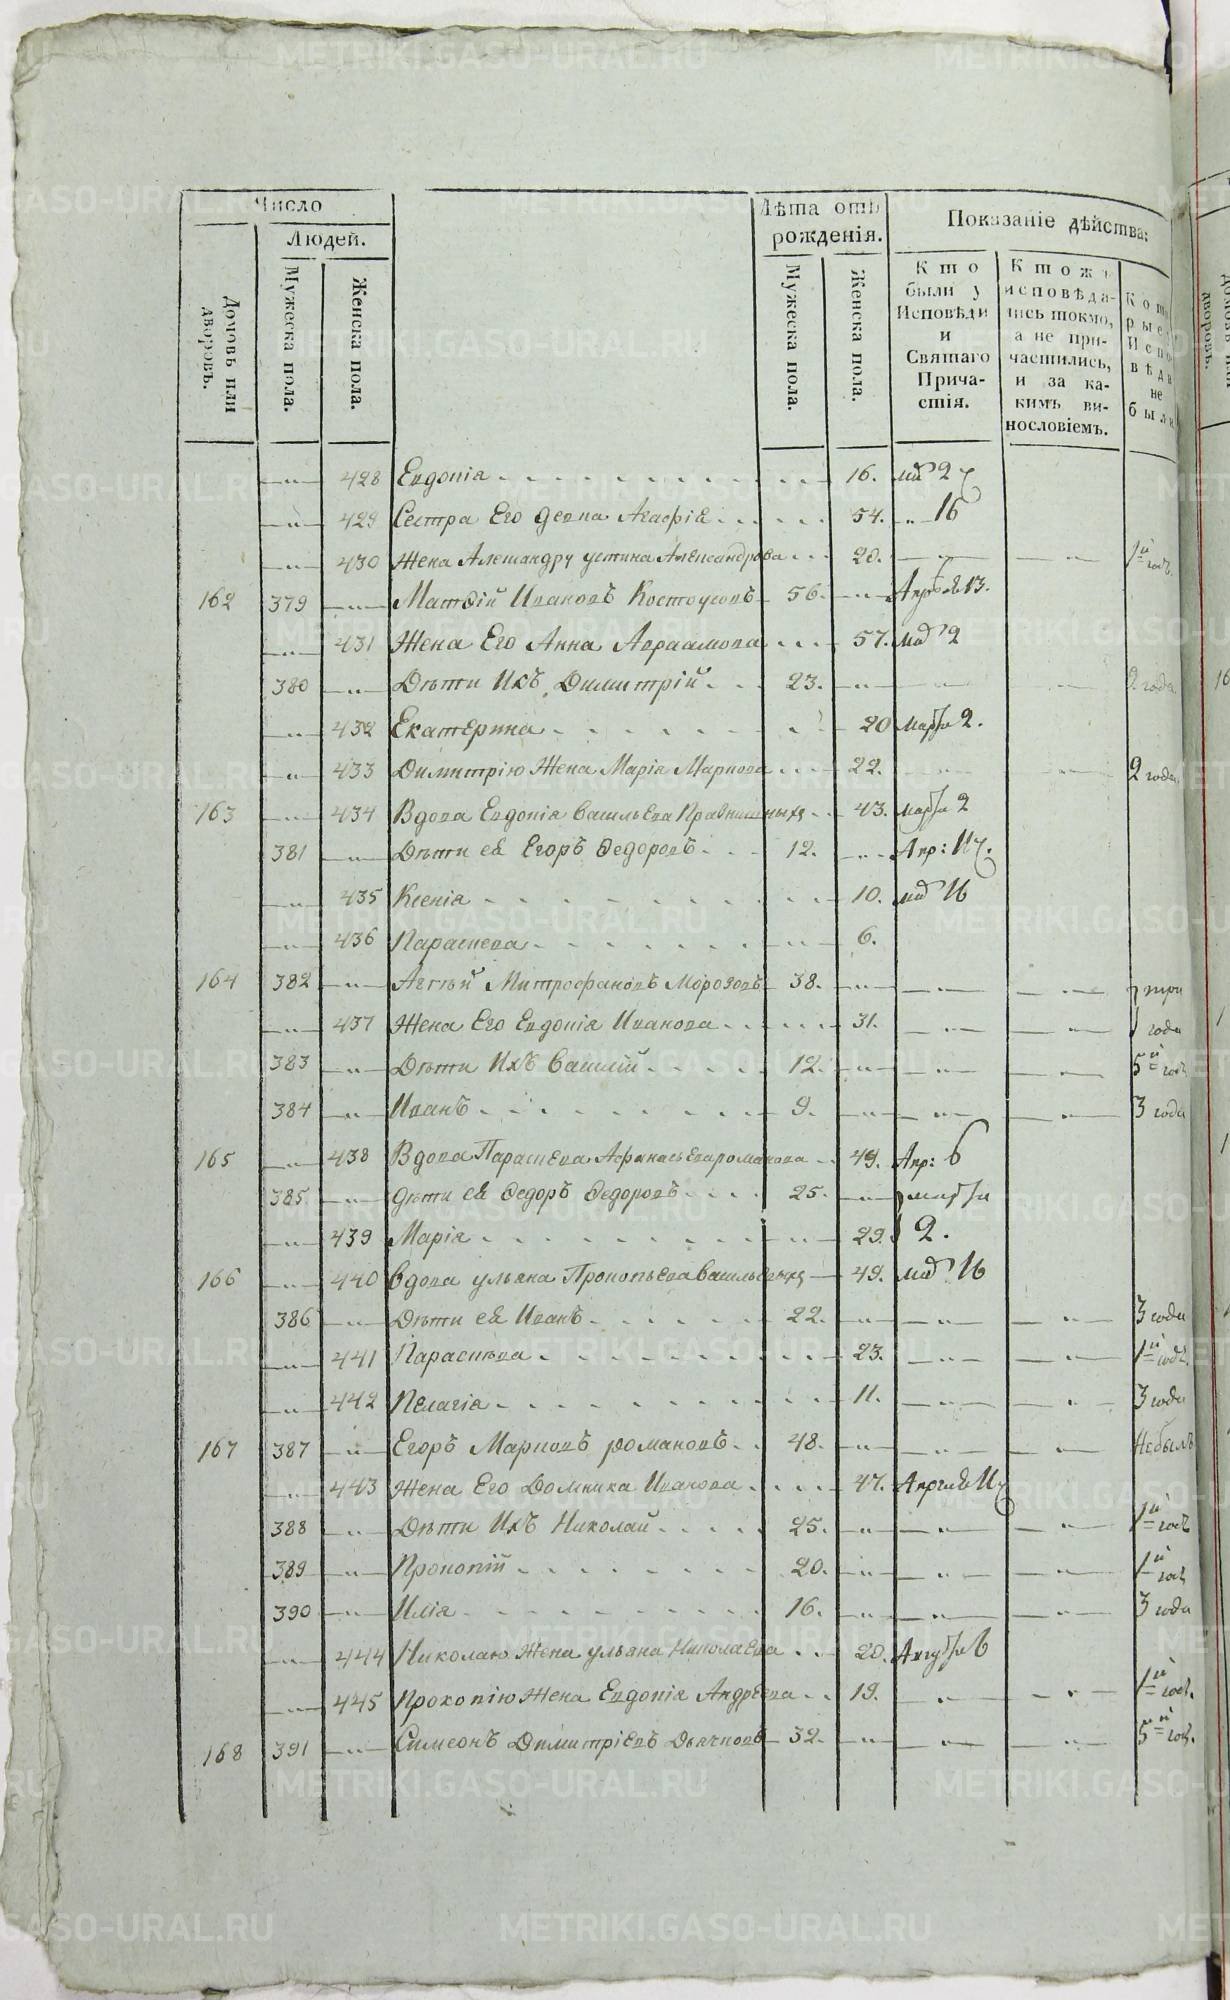 Число
Людей.
Домовъ или дворовъ.
Мужеска пола.
Женска пола.
Лѣта отъ рожденія.
Мужеска пола.
Женска пола.
Показаніе дѣйства:
Кто были у Исповѣди и Святаго Прича-стія.
Ктоже исповѣда-лись токмо, а не при-частились, и за ка-кимъ ви-нословіемъ.
Кото рые Испо вѣди не были
428 Евдокія 16. 27
429 Сестра Его девка Агафія 54. 16
430 Жена Александру устина Александрова 20. 1й годъ
162 379 Матѳій Ивановъ Костоусовъ 56. Апреля 13.
431 Жена Его Анна Авраамова 57. 2
380 Дѣти Ихъ Димитрій 23. 2 года
432 Екатерина 20 Марта 2.
433 Димитрію Жена Марія Маркова 22. 2 года
163 434 Вдова Евдокія Васильева 43. Марта 2
381 Дѣти ея Егоръ Ѳедоровъ 12. Апр: 17.
435 Ксенія 10. 16
436 Параскева 6.
164 382 Митрофановъ Морозовъ 38. три
437 Жена Его Евдокія Иванова 31. года
383 Дѣти Ихъ Василій 12. 5й годъ
384 Иванъ 9. 3 года
165 438 Вдова Параскева Афанасьева романова 49. Апр: 6
385 дѣти ея Ѳедоръ Ѳедоровъ 25. марта
439 Марія 29. 2.
166 440 Вдова ульяна Прокопьева Васильевыхъ 49. 16
386 Дѣти ея Иванъ 22. 3 года
441 Параскева 23. 1й годъ.
442 Пелагія 11. 3 года
167 387 Егоръ Марковъ романовъ 48. Небылъ
443 Жена Его Домника Иванова 47. Апреля 17
388 Дѣти Ихъ Николай 25. 1й годъ
389 Прокопій 20. 1й годъ
390 Илія 16. 3 года
444 Николаю Жена ульяна Николаева 20. Августа 6
445 Прокопію Жена Евдокія Андреева 19. 1й годъ.
168 391 Симеонъ Димитріевъ Дьячковъ 32. 5й годъ.
METRIKI.GASO-URAL.RU